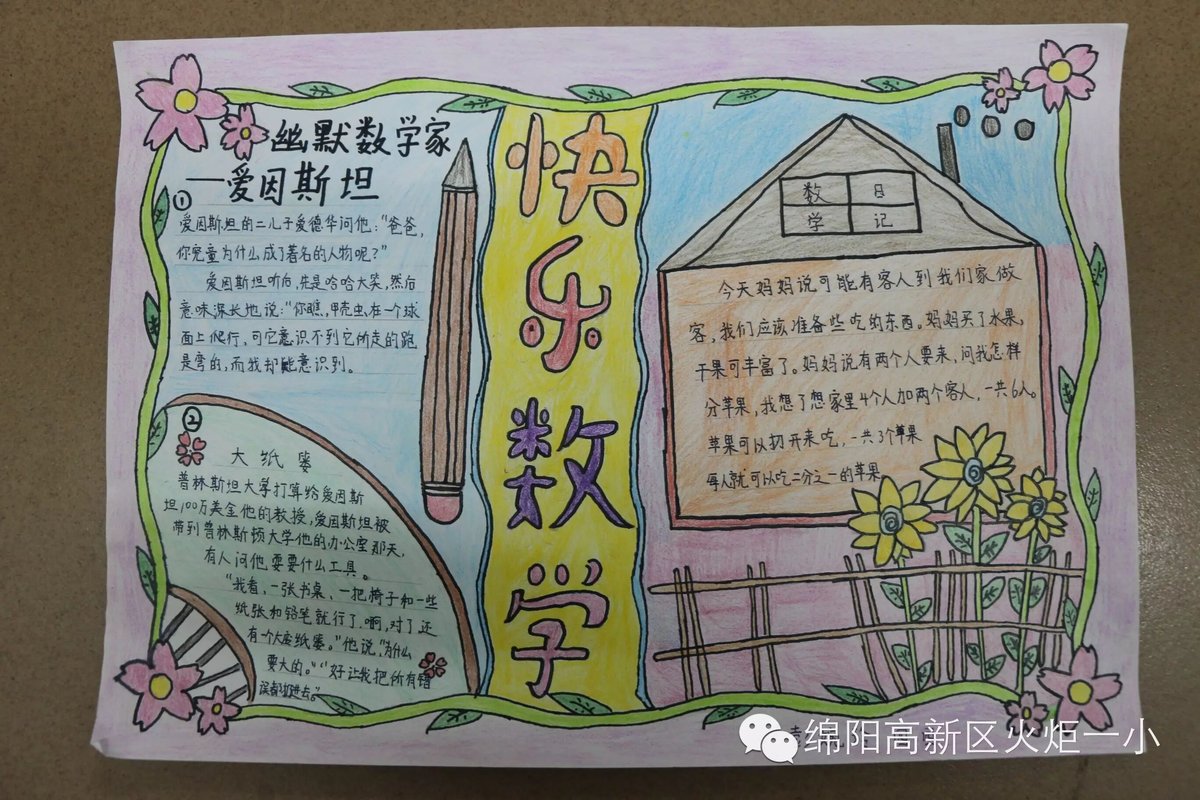 幽默数学家
——爱因斯坦
①
爱因斯坦的二儿子爱德华问他：“爸爸，
你究竟为什么成了著名的人物呢？”
爱因斯坦听后，先是哈哈大笑，然后
意味深长地说：“你瞧，甲壳虫在一个球
面上爬行，可它意识不到它所走的跑
是弯的，而我却能意识到。
②
大纸篓
普林斯坦大学打算给爱因斯
坦100万美金他的教授，爱因斯坦被
带到普林斯顿大学他的办公室那天，
有人问他要要什么工具。
“我看，一张书桌，一把椅子和一些
纸张和铅笔就行了，啊，对了，还
有一个大废纸篓。”他说，“为什么
要大的。”“好让我把所有错
误都扔进去。”
快乐数学
数日
学记
今天妈妈说可能有客人到我们家做
客，我们应该准备些吃的东西。妈妈买了水果，
干果可丰富了。妈妈说有两个人要来，问我怎样
分苹果，我想了想家里4个人加两个客人，一共6人。
苹果可以切开来吃，一共3个苹果
每人就可以吃二分之一的苹果
绵阳高新区火炬一小